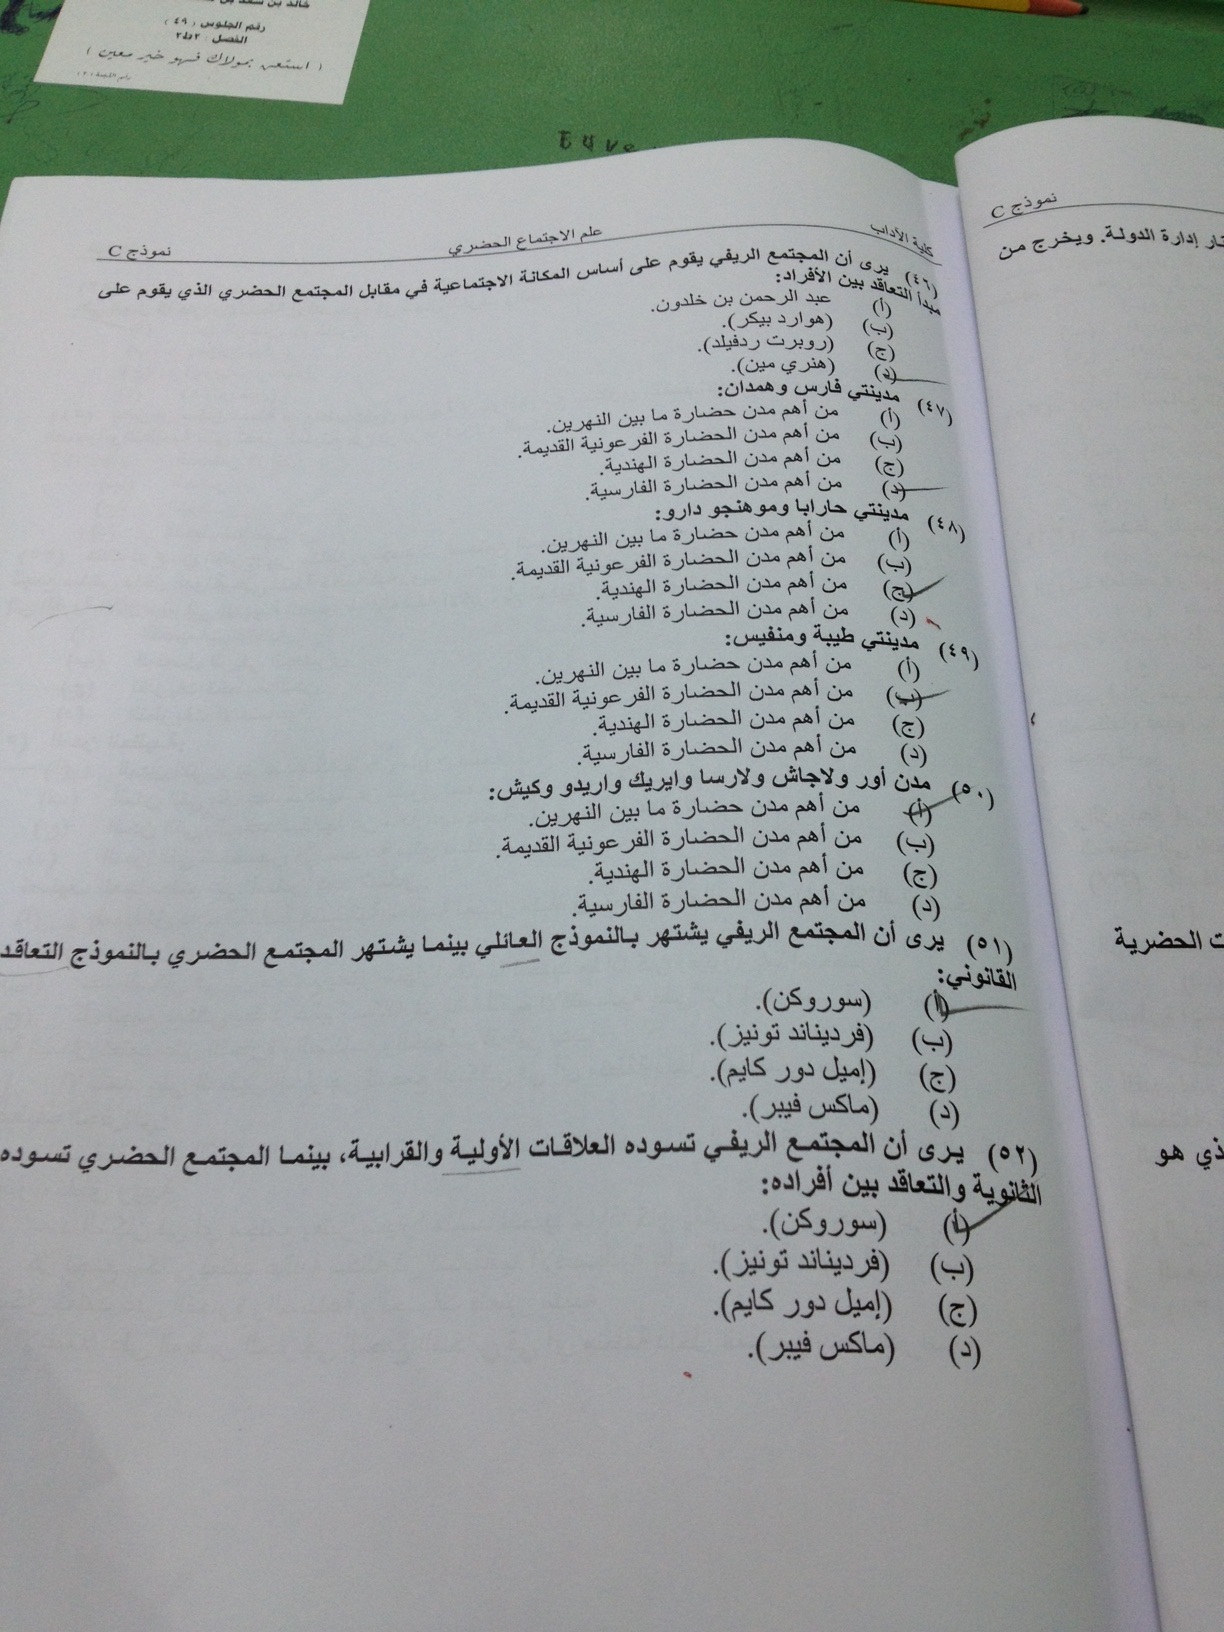 رقم الجلوس ( ٤٩ )
الفصل : ٣ط٢
( استعن بمولاك فهو خير معين )
كلية الآداب علم الاجتماع الحضري نموذج C
(٤٦) يرى أن المجتمع الريفي يقوم على أساس المكانة الاجتماعية في مقابل المجتمع الحضري الذي يقوم على
مبدأ التعاقد بين الأفراد:
(أ) عبد الرحمن بن خلدون.
(ب) (هوارد بيكر).
(ج) (روبرت ردفيلد).
(د) (هنري مين).
(٤٧) مدينتي فارس وهمدان:
(أ) من أهم مدن حضارة ما بين النهرين.
(ب) من أهم مدن الحضارة الفرعونية القديمة.
(ج) من أهم مدن الحضارة الهندية.
(د) من أهم مدن الحضارة الفارسية.
(٤٨) مدينتي حارابا وموهنجو دارو:
(أ) من أهم مدن حضارة ما بين النهرين.
(ب) من أهم مدن الحضارة الفرعونية القديمة.
(ج) من أهم مدن الحضارة الهندية.
(د) من أهم مدن الحضارة الفارسية.
(٤٩) مدينتي طيبة ومنفيس:
(أ) من أهم مدن حضارة ما بين النهرين.
(ب) من أهم مدن الحضارة الفرعونية القديمة.
(ج) من أهم مدن الحضارة الهندية.
(د) من أهم مدن الحضارة الفارسية.
(٥٠) مدن أور ولاجاش ولارسا وايريك واريدو وكيش:
(أ) من أهم مدن حضارة ما بين النهرين.
(ب) من أهم مدن الحضارة الفرعونية القديمة.
(ج) من أهم مدن الحضارة الهندية.
(د) من أهم مدن الحضارة الفارسية.
(٥١) يرى أن المجتمع الريفي يشتهر بالنموذج العائلي بينما يشتهر المجتمع الحضري بالنموذج التعاقد
القانوني:
(أ) (سوروكن).
(ب) (فرديناند تونيز).
(ج) (إميل دور كايم).
(د) (ماكس فيبر).
(٥٢) يرى أن المجتمع الريفي تسوده العلاقات الأولية والقرابية، بينما المجتمع الحضري تسوده
الثانوية والتعاقد بين أفراده:
(أ) (سوروكن).
(ب) (فرديناند تونيز).
(ج) (إميل دور كايم).
(د) (ماكس فيبر).
نموذج C
إدارة الدولة. ويخرج من
الحضرية
هو